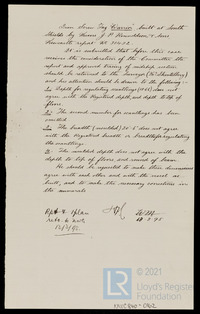 Iron Screw Tug "Carrie" built at South
Shields by Messrs J. P. Rennoldson & Sons
Newcastle report No
It is submitted that before this case
receives the consideration of the Committee the
report and approved tracing of midship section
should be returned to the Surveyor
and his attention should be drawn to the following:-
1st Depth for regulating scantlings does not
agree with the Registered depth, and depth to top of
floors.
2nd The second number for scantlings has been
omitted
3rd The breadth (moulded) does not agree
with the Registered breadth or breadth for regulating
the scantlings
4. The moulded depth does not agree with the
depth to top of floors and round of beam.
He should be requested to make these dimensions
agree with each other and with the vessel as
built, and to make the necessary corrections in
the numerals.
Rpt & plan
© 2021
Lloyd's Register
Foundation